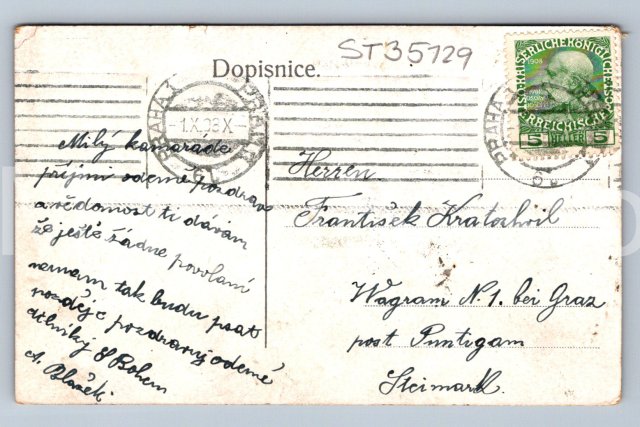 ST35729
Dopisnice.
PRAHA 1 PRAG
1.X.08 X
KAISERLICHE KÖNIGLICHE
ÖSTERREICHISCHE
1908
5 HELLER 5
PRAHA
Milý kamaráde
přijmi odemě pozdrav
a vědomost ti dávám
že ještě žádne povolaní
nemam tak budu psat
později pozdravuj odemě
dělníky S Bohem
A. Blažek.
Herren.
František Kratochvil
Wagram N. 1. bei Graz
post Puntigam
Steimark.